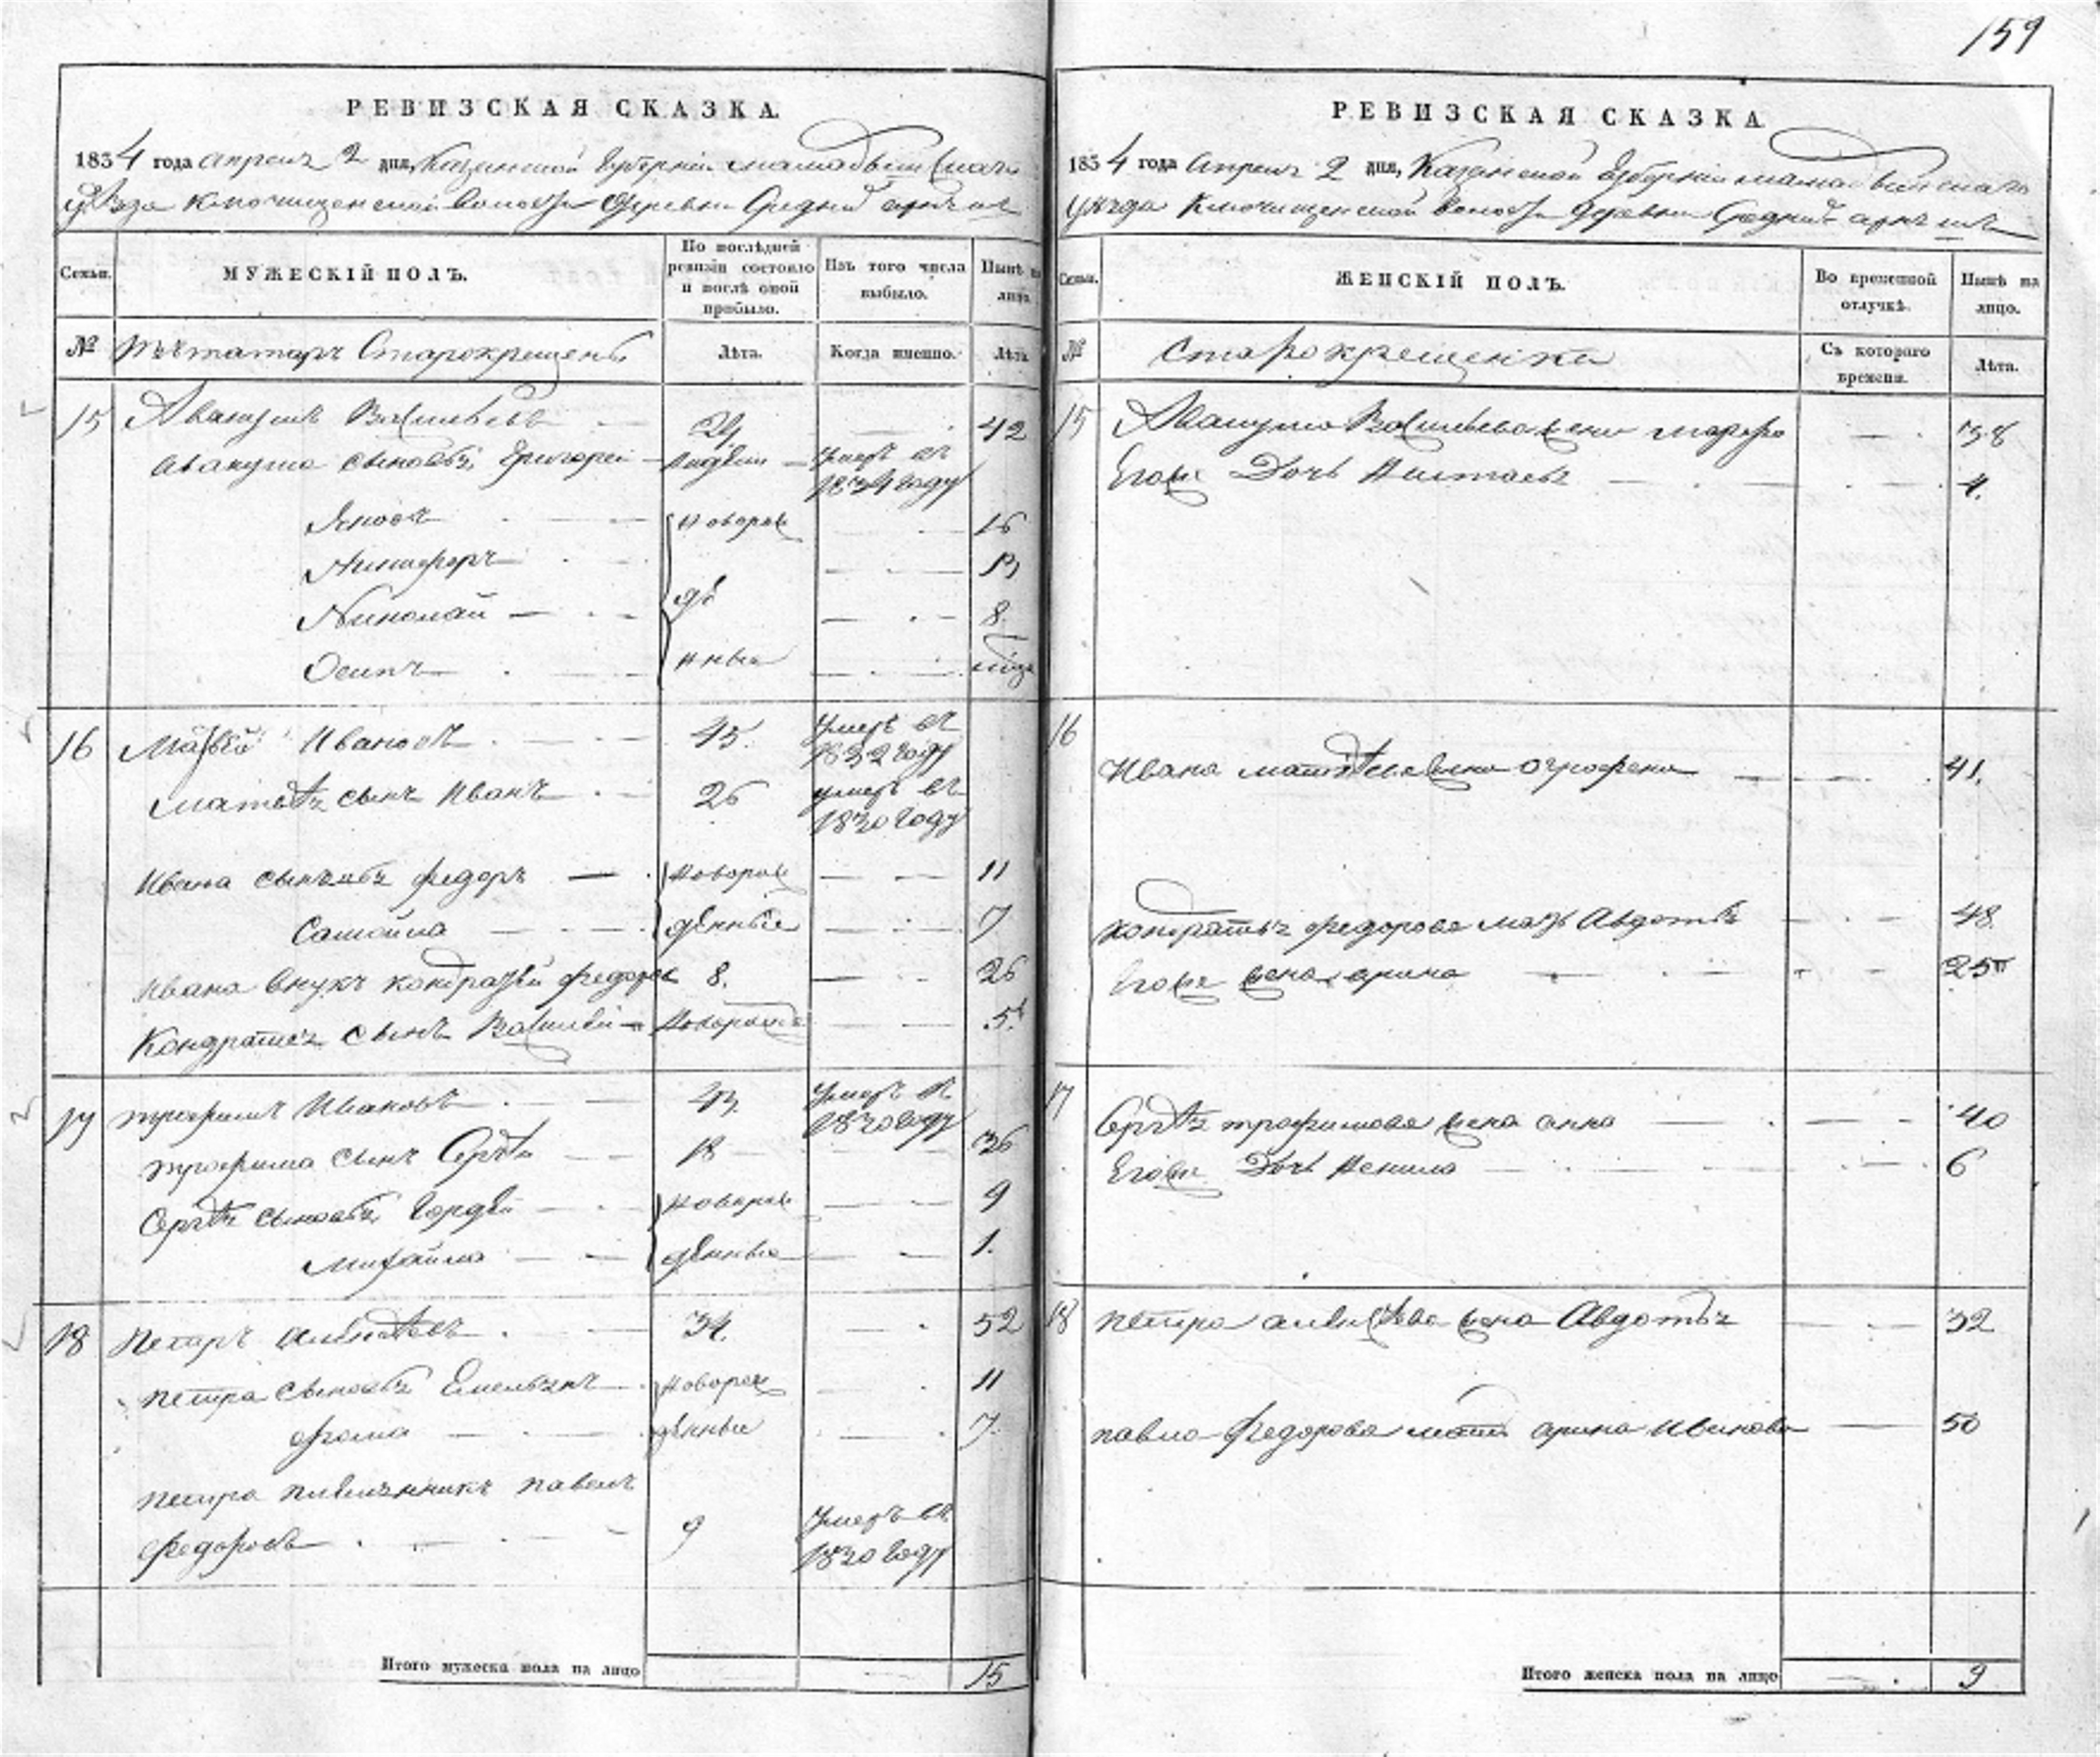 159
РЕВИЗСКАЯ СКАЗКА
1834 года апреля 2 дня, Казанской губернии мамадышскаго
уѣзда Ключищенской волости деревни Средней
Семьи. МУЖЕСКІЙ ПОЛЪ. По послѣдней ревизіи состояло и послѣ оной прибыло. Изъ того числа выбыло. Нынѣ на лицо.
№ Изъ татаръ Старокрещены Лѣта. Когда именно. Лѣта.
15 Авакумъ Васильевъ 24 42
Авакума сыновья Григорей умеръ въ 1834 году
Яковъ новорож 16
Никифоръ 13
Николай дѣ 8
Осипъ нные
16 Матвей Ивановъ 45 умеръ въ 1832 году
Матвея сынъ Иванъ 26 умеръ въ 1830 году
Ивана сыновья федоръ новорож 11
Самойла дѣнные 7
Ивана внукъ кондратей федоровъ 8. 26
Кондратья сынъ Василей новорож 5
17 трофимъ Ивановъ 43 умеръ въ 1830 году
трофима сынъ Сергей 18 36
Сергея сыновья Гордей новорож 9
михайла дѣнные 1.
18 Петаръ алексѣевъ 34. 52
петра сыновья Емельянъ новорож 11
фома дѣнные 7.
петра племянникъ павелъ
федоровъ 9 умеръ въ 1830 году
Итого мужеска пола на лицо 15
РЕВИЗСКАЯ СКАЗКА
1834 года апреля 2 дня, Казанской губернии мамадышскаго
уѣзда Ключищенской волости деревни Средней
Семьи. ЖЕНСКІЙ ПОЛЪ. Во временной отлучкѣ. Нынѣ на лицо.
№ Старокрещенки Съ котораго времени. Лѣта.
15 Авакума Васильева жена марфа 38
Его же Дочь Настасья 4.
16
Ивана матвеева жена огрофена 41.
кондратья федорова мать Авдотья 48
Его же жена арина 25
17 Сергея трофимова жена анна 40
Его же Дочь Ненила 6
18 петра алексѣева жена Авдотья 32
павла федорова мать арина Иванова 50
Итого женска пола на лицо 9